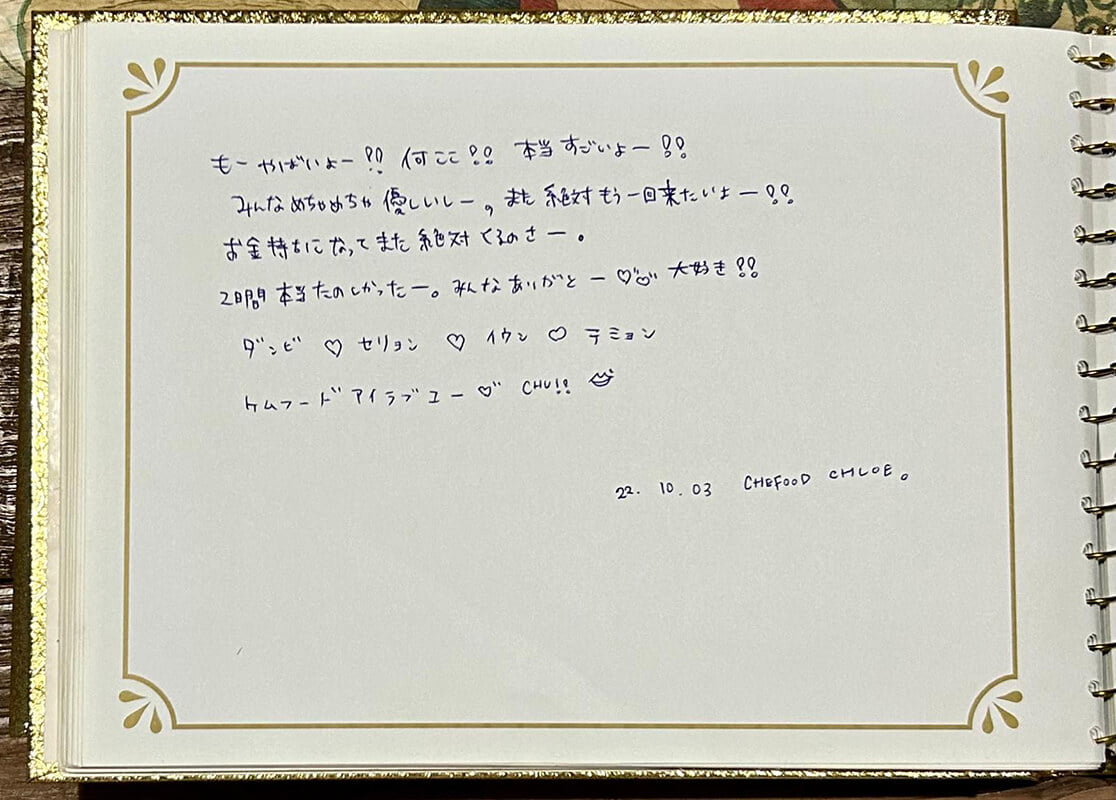 もーやばいよー!! 何ここ!! 本当すごいよー!!
みんなめちゃめちゃ優しいしー。また絶対もう一回来たいよー!!
お金持ちになってまた絶対くるのさー。
2日間本当たのしかったー。みんなありがとー♡♡ 大好き!!
ダンビ ♡ セリョン ♡ イウン ♡ テミョン
ケムフードアイラブユー♡ CHU!!
22. 10. 03 CHEFOOD CHLOE。